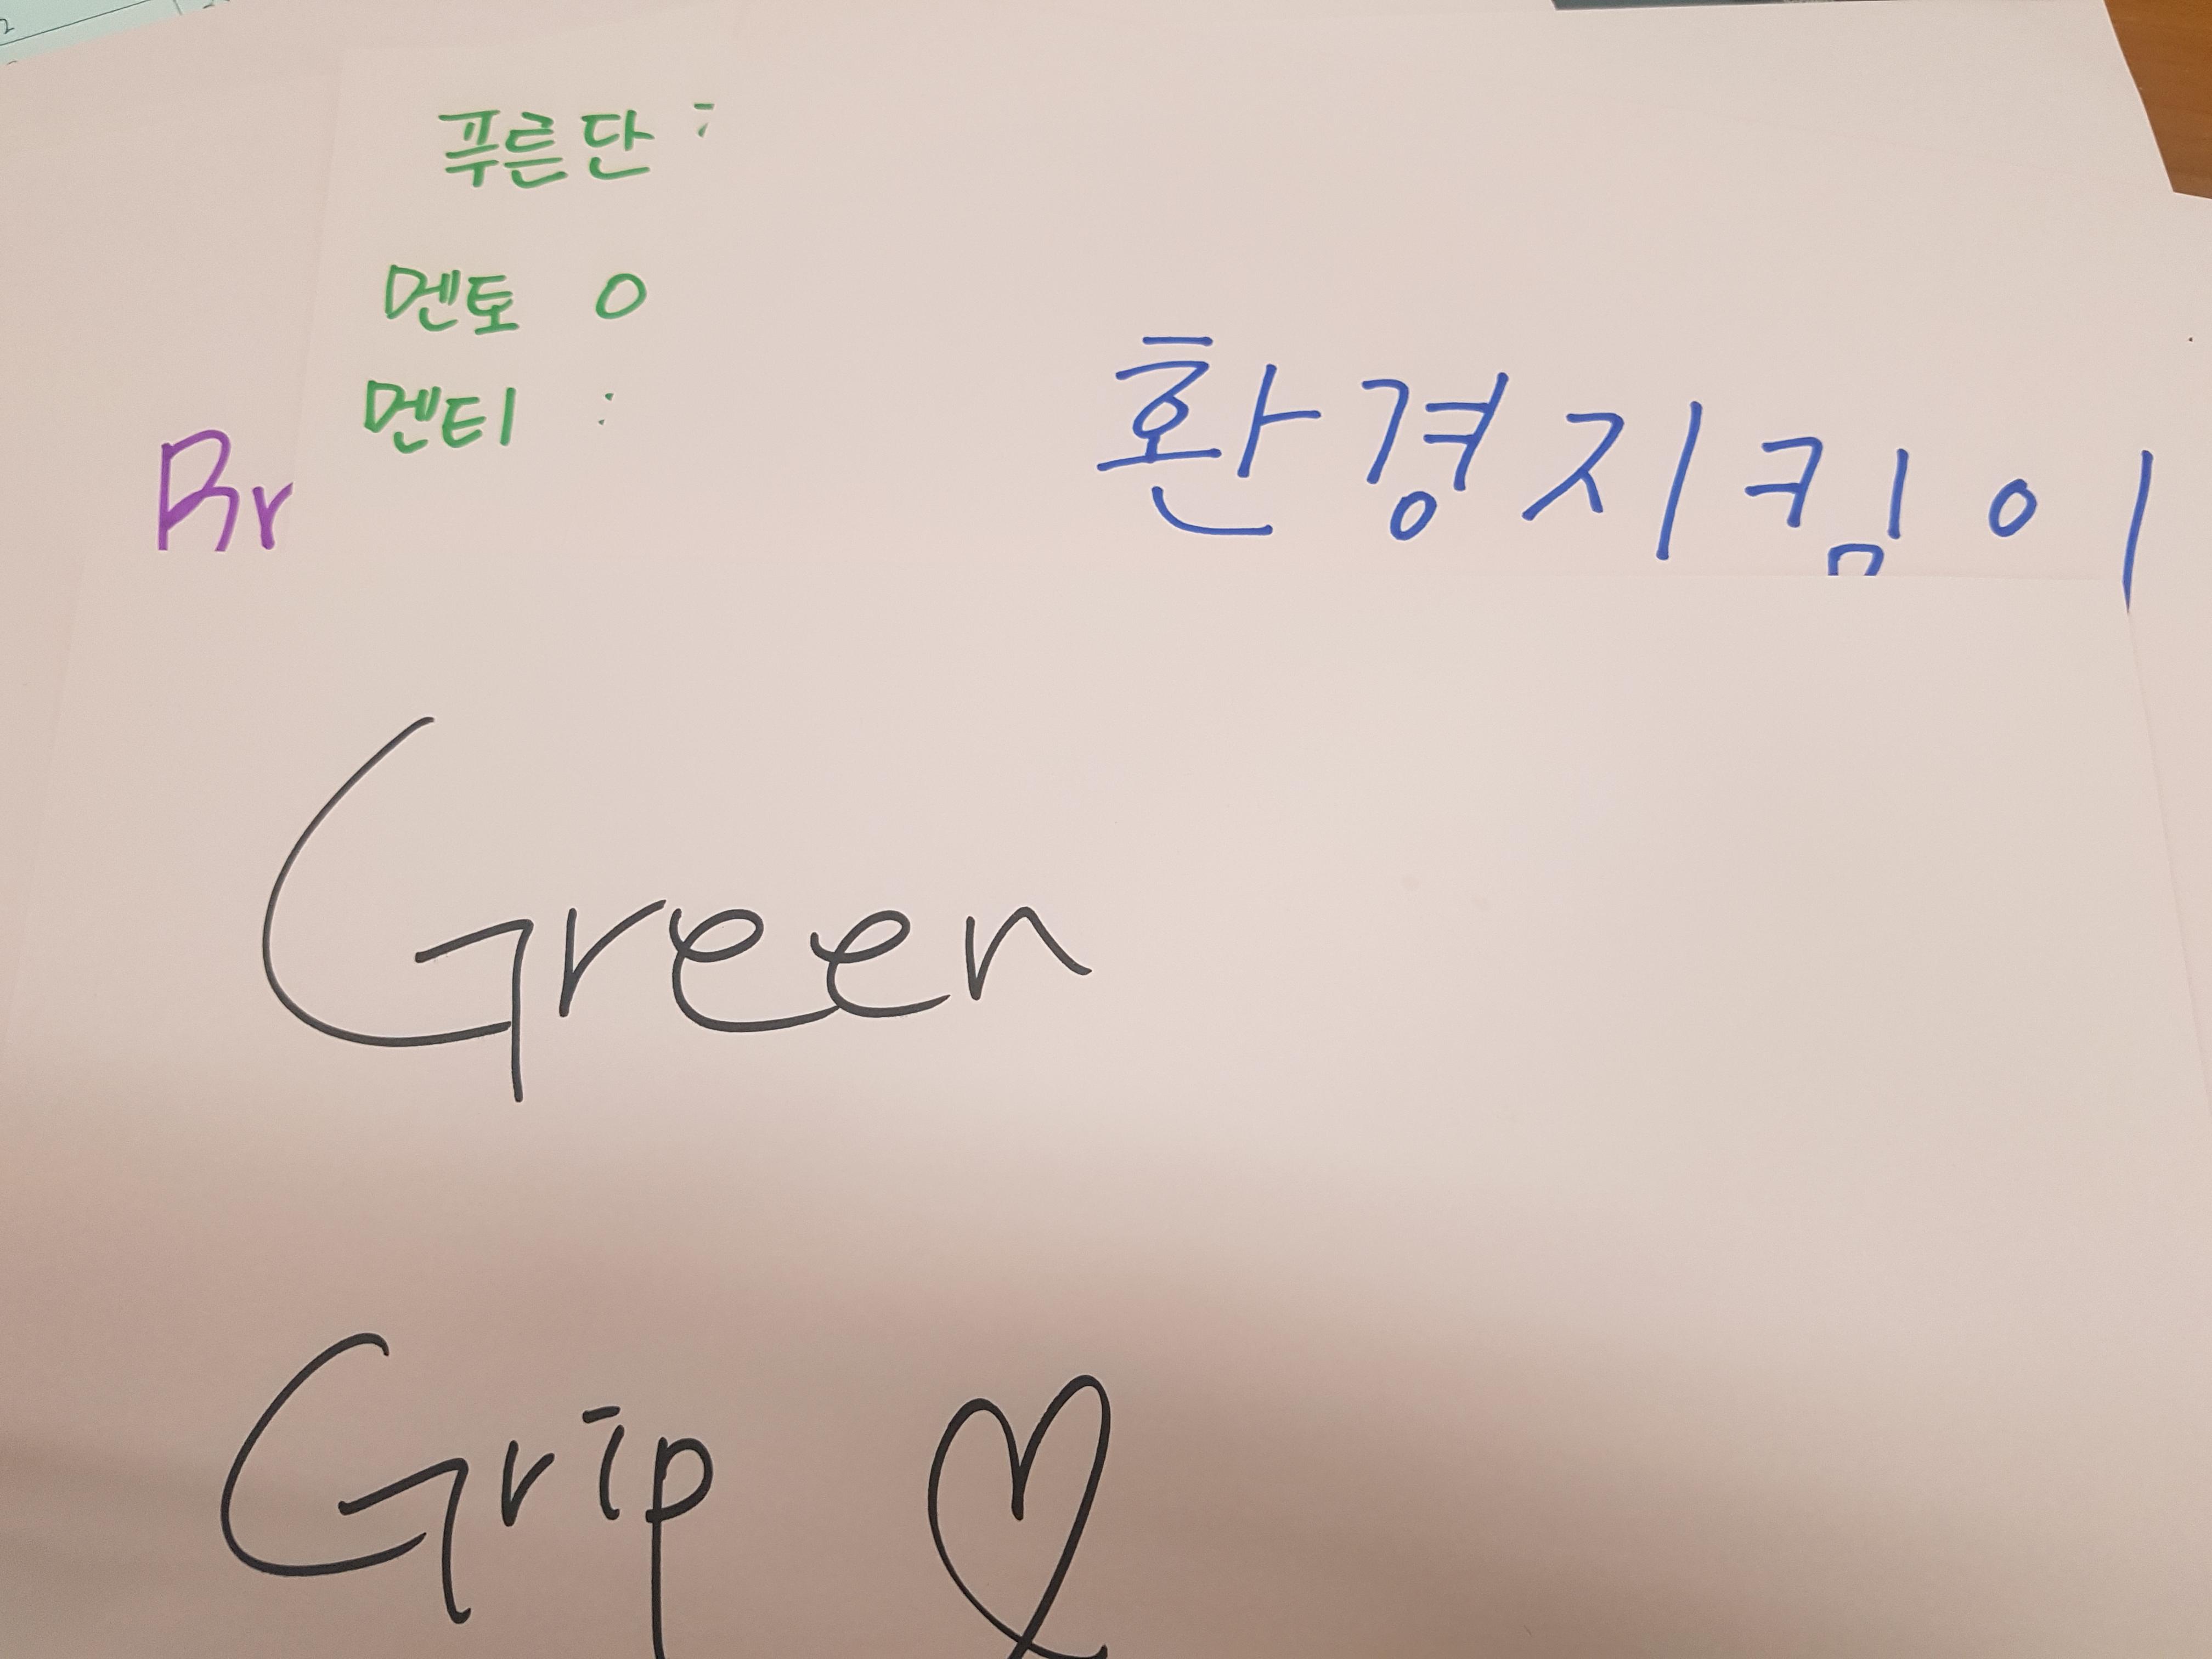 푸른단 :
멘토 O
멘티 :
환경지킴이
Green
Grip